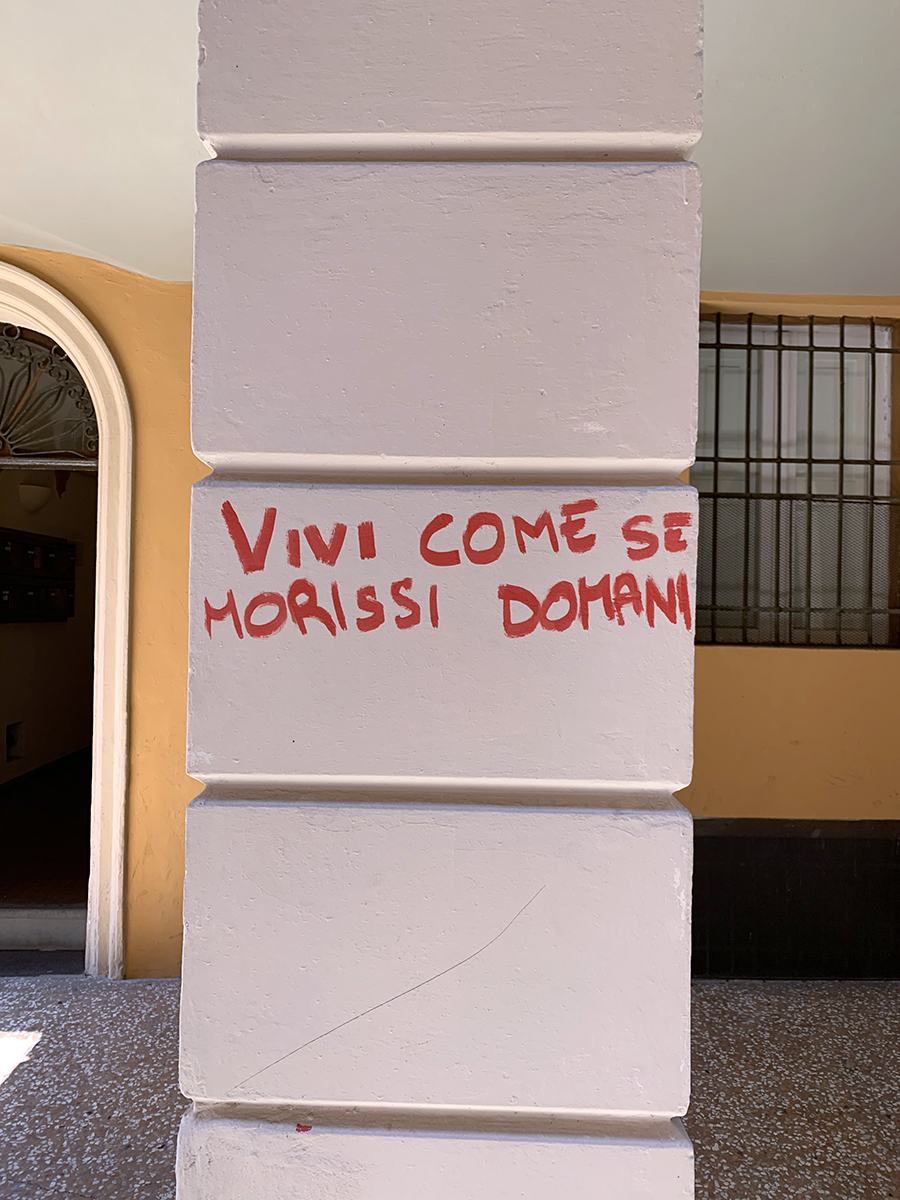 VIVI COME SE
MORISSI DOMANI